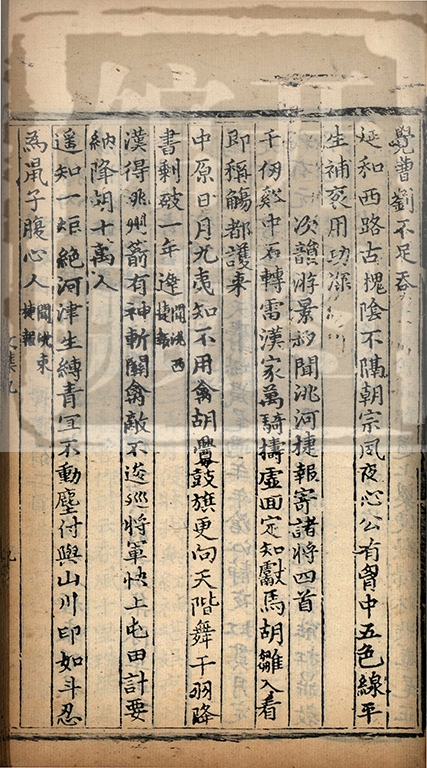 覺曹劉不足吞
延和西路古槐陰不隔朝宗夙夜心公有胷中五色線平
生補衮用功深
次韻游景叔聞洮河捷報寄諸將四首
千仞谿中石轉雷漢家萬騎擣虛囬定知獻馬胡雛入看
即稱觴都護來
中原日月九夷知不用禽胡釁鼓旗更向天階舞干羽降
書剩破一年遲 聞洮西捷報
漢得洮州箭有神斬關禽敵不逡巡將軍快上屯田計要
納降胡十萬人
遥知一炬絶河津生縛青宜不動塵付與山川印如斗忍
為鼠子腹心人 聞洮東捷報